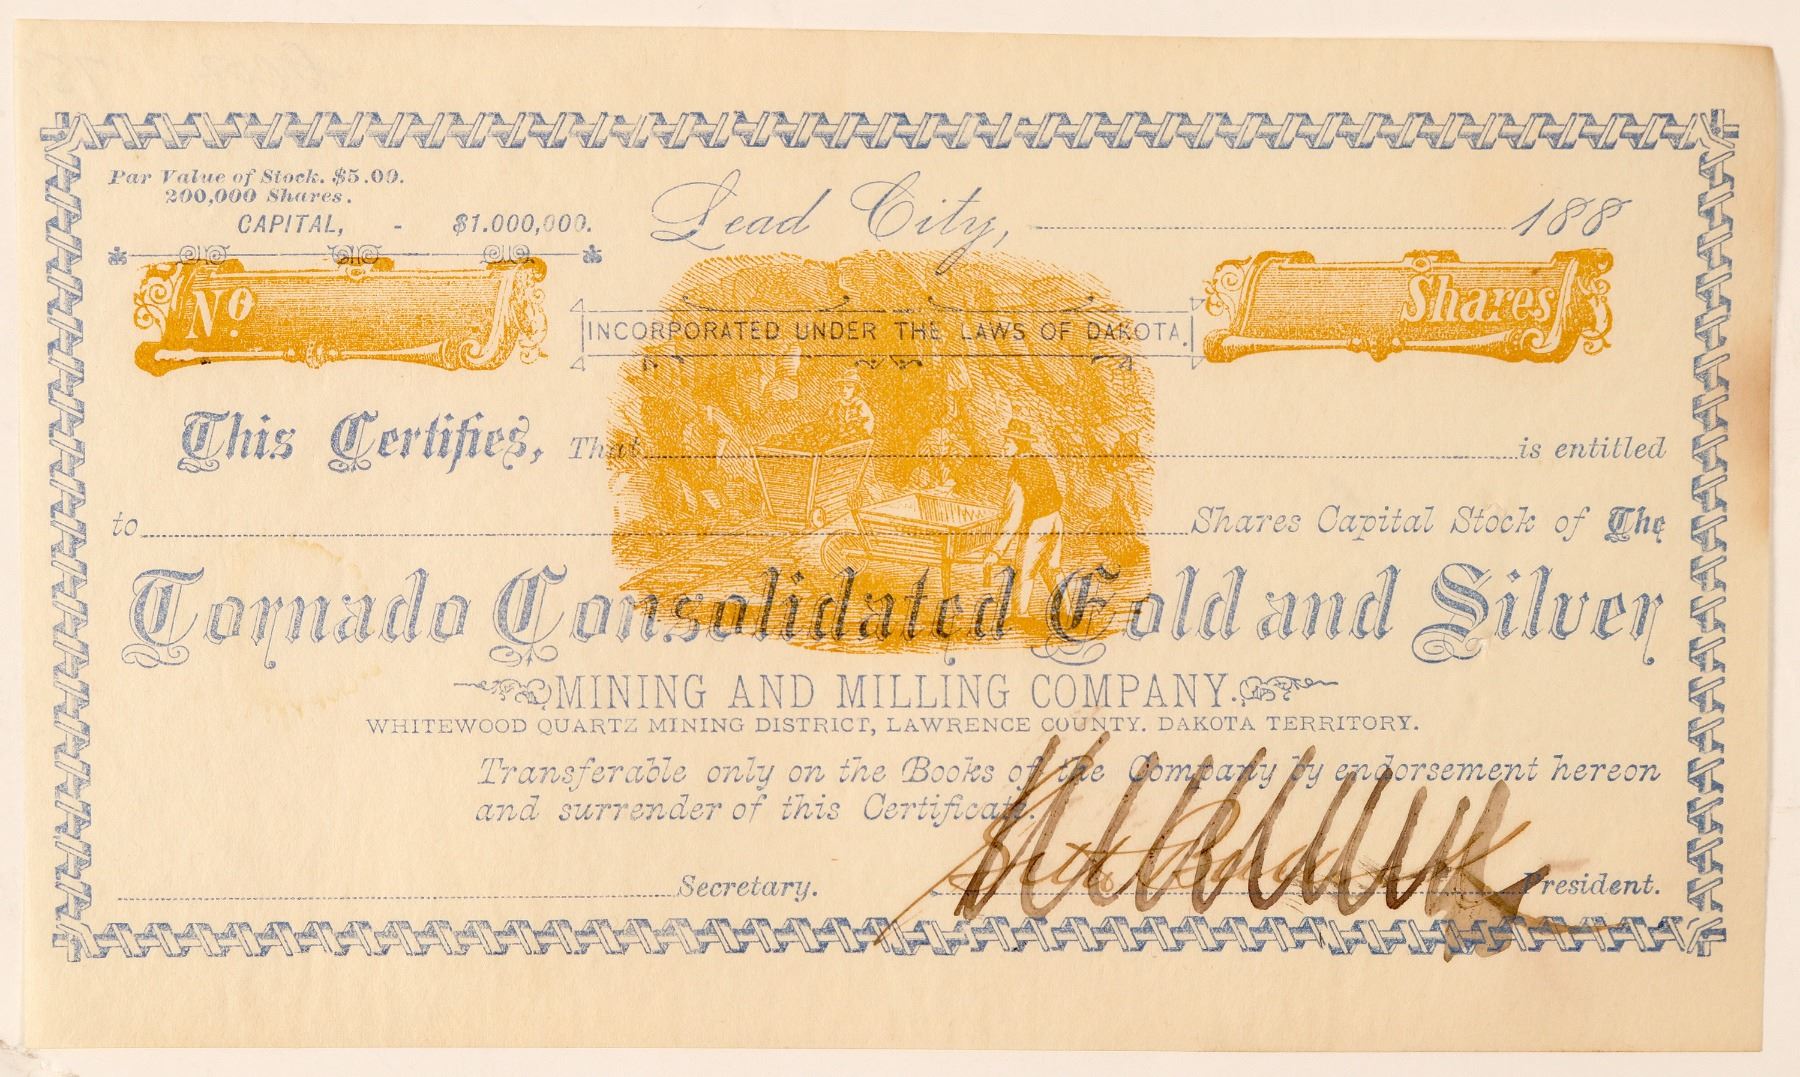 Par Value of Stock. $5.00.
200,000 Shares.
CAPITAL, - $1.000,000.
Lead City, 188
No.
Shares
INCORPORATED UNDER THE LAWS OF DAKOTA.
This Certifies, That is entitled
to Shares Capital Stock of The
Tornado Consolidated Gold and Silver
MINING AND MILLING COMPANY.
WHITEWOOD QUARTZ MINING DISTRICT, LAWRENCE COUNTY. DAKOTA TERRITORY.
Transferable only on the Books of the Company by endorsement hereon
and surrender of this Certificate.
Secretary. President.